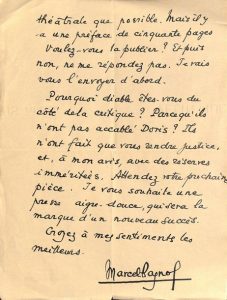 théâtrale que possible. Mais il y
a une préface de cinquante pages
Voulez-vous la publier ? Et puis
non, ne me répondez pas. Je vais
vous l'envoyer d'abord.
Pourquoi diable êtes-vous du
côté de la critique ? Parcequ'ils
n'ont pas accablé Doris ? Ils
n'ont fait que vous rendre justice,
et, à mon avis, avec des réserves
imméritées. Attendez votre prochaine
pièce. Je vous souhaite une
presse aigre-douce, qui sera la
marque d'un nouveau succès.
Croyez à mes sentiments les
meilleurs.
Marcel Pagnol